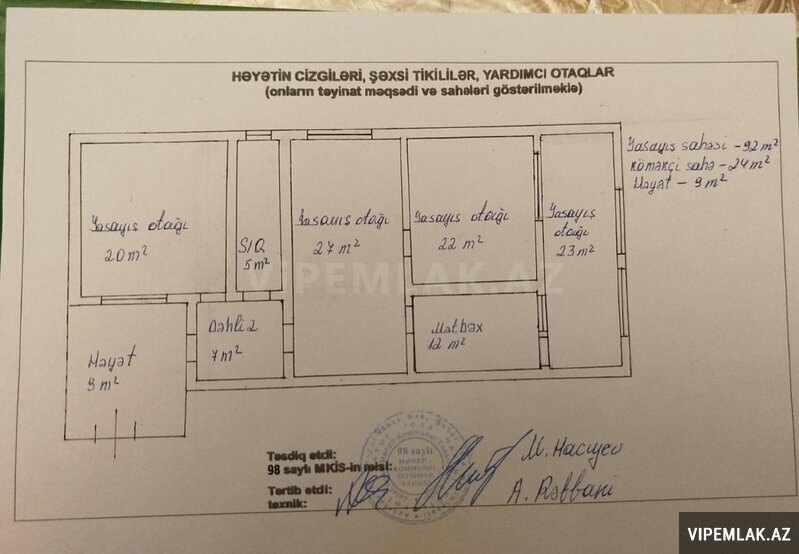 HƏYƏTİN CİZGİLƏRİ, ŞƏXSİ TİKİLİLƏR, YARDIMCI OTAQLAR
(onların təyinat məqsədi və sahələri göstərilməklə)
Yaşayış sahəsi - 92 m²
Köməkçi sahə - 24 m²
Həyət - 9 m²
Yaşayış otağı
20 m²
S/Q
5 m²
Yaşayış otağı
27 m²
Yaşayış otağı
22 m²
Yaşayış
otağı
23 m²
VIPEMLAK.AZ
Dəhliz
7 m²
Mətbəx
12 m²
Həyət
9 m²
Təsdiq etdi:
98 saylı MKİS-in rəisi:
M. Hacıyev
Tərtib etdi:
texnik:
A. Rəbbani
98 saylı
MƏNZİL
KOMMUNAL
İSTİSMAR
SAHƏSİ
VIPEMLAK.AZ